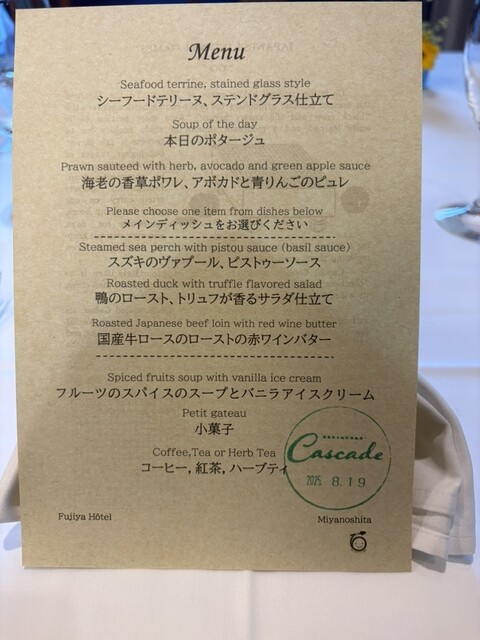 Menu
Seafood terrine, stained glass style
シーフードテリーヌ、ステンドグラス仕立て
Soup of the day
本日のポタージュ
Prawn sauteed with herb, avocado and green apple sauce
海老の香草ポワレ、アボカドと青りんごのピュレ
Please choose one item from dishes below
メインディッシュをお選びください
Steamed sea perch with pistou sauce (basil sauce)
スズキのヴァプール、ピストゥーソース
Roasted duck with truffle flavored salad
鴨のロースト、トリュフが香るサラダ仕立て
Roasted Japanese beef loin with red wine butter
国産牛ロースのローストの赤ワインバター
Spiced fruits soup with vanilla ice cream
フルーツのスパイスのスープとバニラアイスクリーム
Petit gateau
小菓子
Coffee,Tea or Herb Tea
コーヒー, 紅茶, ハーブティ
RESTAURANT
Cascade
2025. 8.19
Fujiya Hôtel
Miyanoshita